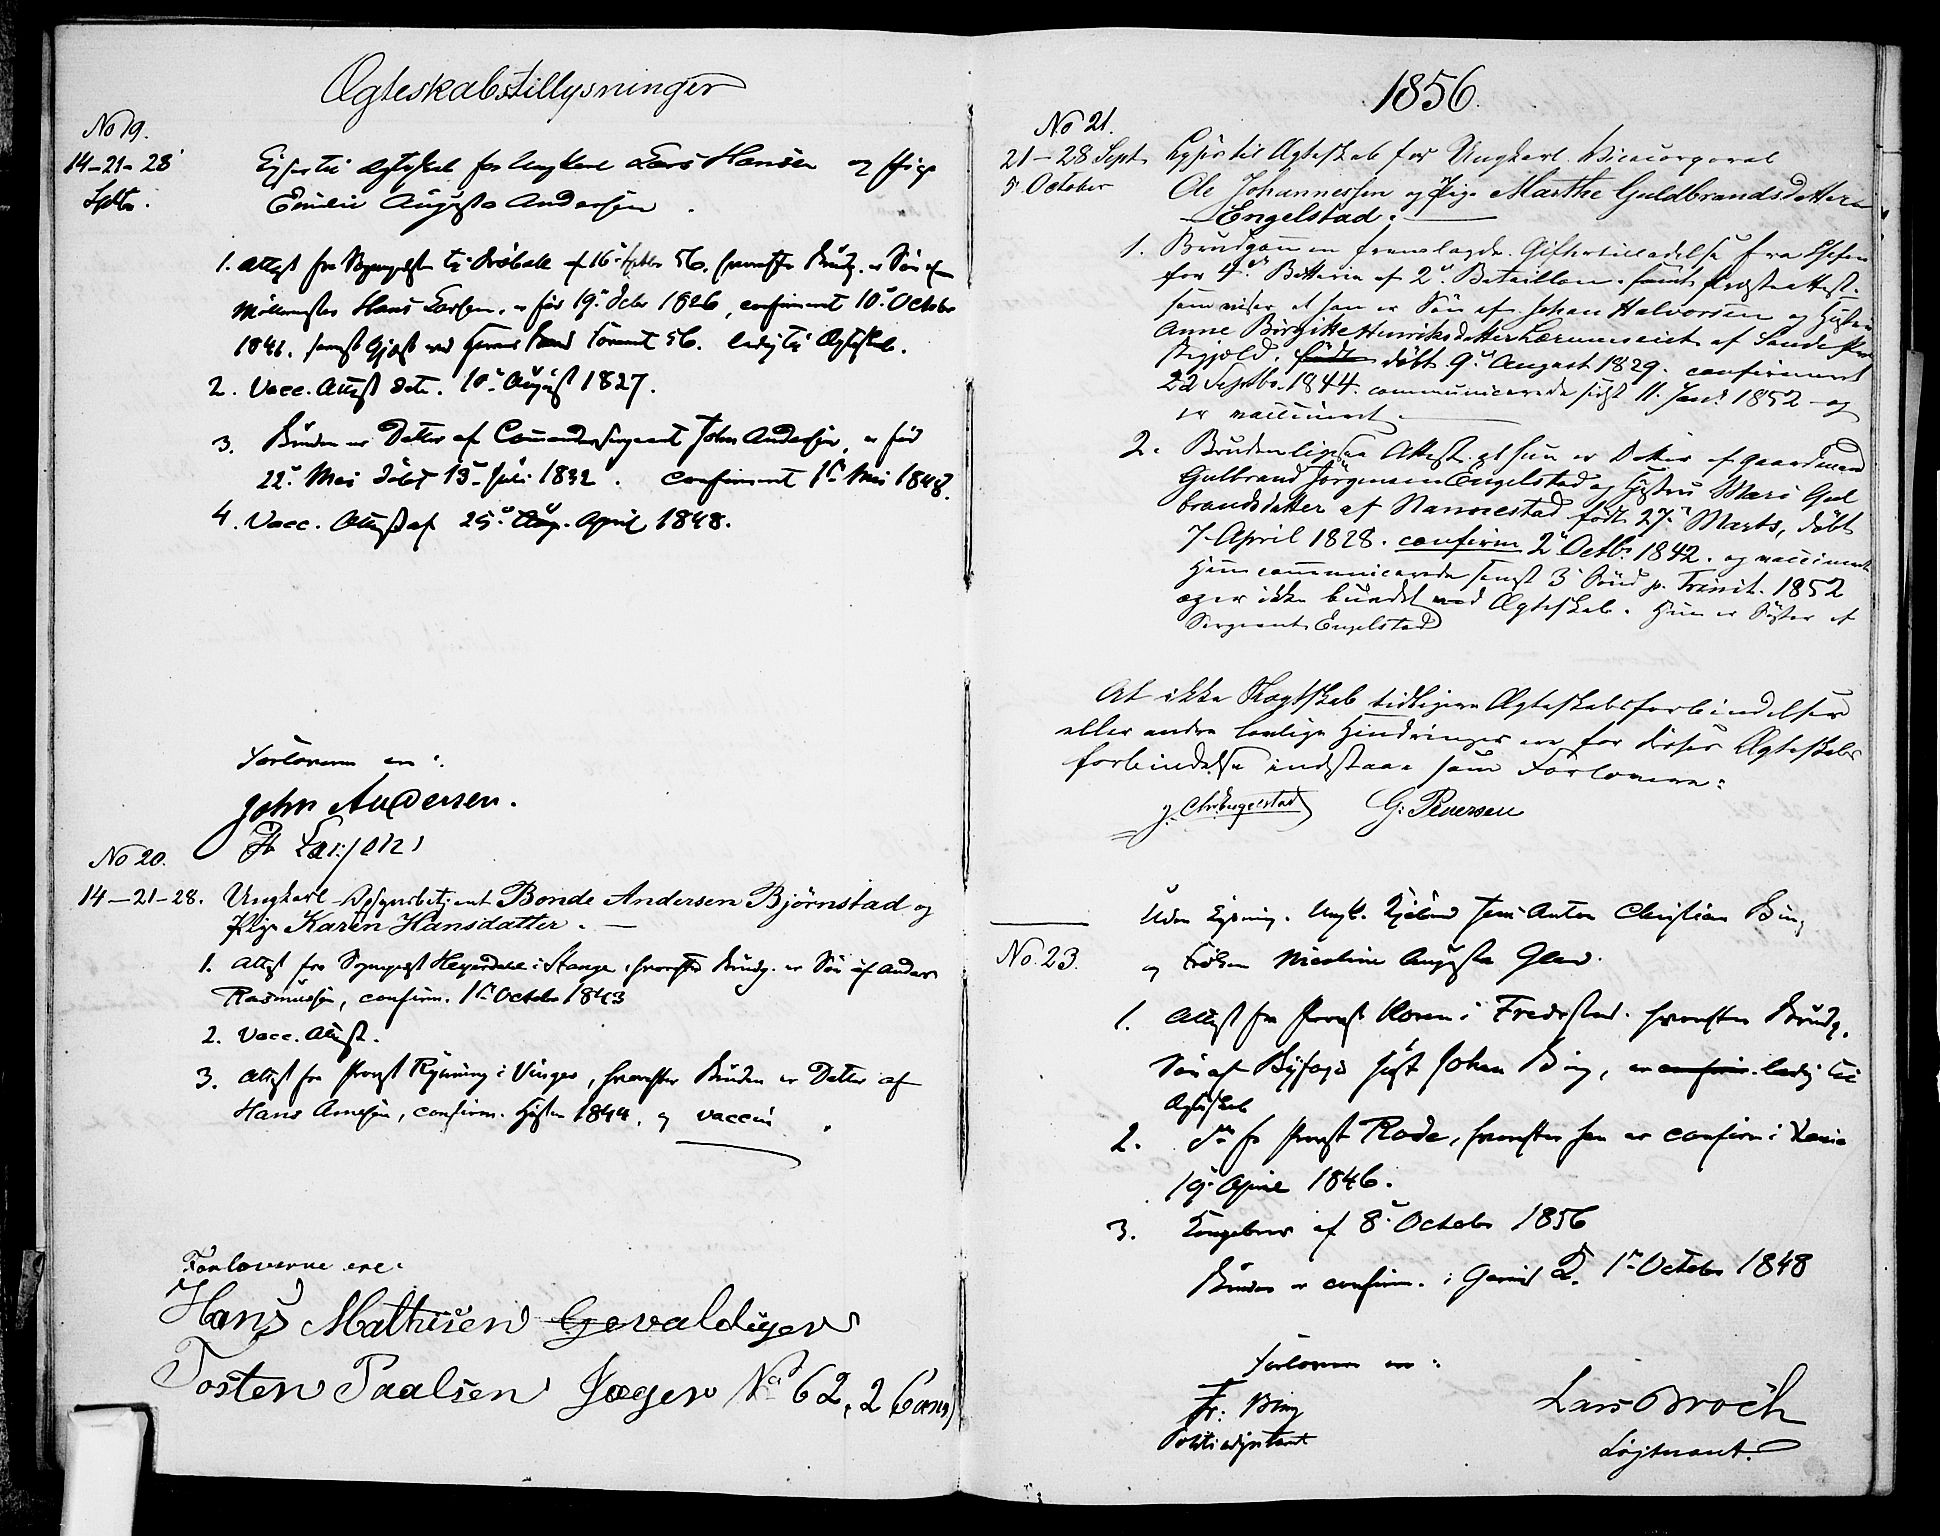 Ægteskabstillysninger
No 19.
14-21-28
Septbr.
Lyses til Ægteskab for Ungkarl Lars Hansen og Pige
Emilie Augusta Andersen.
1. Attest fra Sognepræsten til Drøbak af 16de Septbr 56. hvorefter Brudg. er Søn af
Møllermester Hans Larsen, er født 19de Octbr 1826, confirmeret 10de October
1841. senest 56. ledig til Ægteskab.
2. Vacc. Attest dat. 10de August 1827.
3. Bruden er Datter af Commandersergeant John Andersen, er født
22de Mai døbt 15de Juli 1832. confirmeret 1ste Mai 1848.
4. Vacc. Attest af 25de Aug. April 1848.
Forloverne ere:
John Andersen.
H Larsen
No 20.
14-21-28. Ungkarl Bonde Andersen Bjørnstad og
Pige Karen Hansdatter.
1. Attest fra Sognepræst Heyerdahl i Stange, hvorefter Brudg. er Søn af Anders
Rasmussen, confirm. 1ste October 1843
2. Vacc. Attest.
3. Attest fra Provst Rynning i Vinger, hvorefter Bruden er Datter af
Hans Arnesen, confirm. Høsten 1844, og vaccin
Forloverne ere:
Hans Mathisen Gevaldiger
Tosten Paalsen Jæger No 62, 2 Comp
1856.
No 21.
21-28 Septr
5 October
Lyses til Ægteskab for Ungkarl Vicecorporal
Ole Johannessen og Pige Marthe Guldbrandsdatter
Engelstad.
1. Brudgommen fremlagde Giftertilladelse fra Chefen
for 4de Batterie af 2den Bataillon. samt Præsteattest.
som viser at han er Søn af Johan Halvorsen og Hustru
Anne Birgitte Henriksdatter af Sande
. født døbt 9de August 1829. confirmeret
22 Septbr. 1844. communicerede sidst 11 Jan. 1852 og
er vaccineret.
2. Brudens Attest at hun er Datter af Gaardmand
Gulbrand Jørgensen Engelstad og Hustru Mari Gul
brandsdatter af Nannestad født 27de Marts, døbt
7 April 1828. confirm 2 Octbr 1842. og vaccineret
Hun communicerede senest 3 Sønd p. Trinit. 1852
og er ikke bundet ved Ægteskab. Hun er Søster af
Sergeant Engelstad
At ikke Slægtskab tidligere Ægteskabsforbindelser
eller andre lovlige Hindringer ere for disses Ægteskabs
forbindelse indestaae som Forlovere:
J. Chr Engelstad G. Pettersen
No. 23.
Uden Lysning. Ungk. Jens Anton Christian Bing
og Frøken Nicoline Augusta Glad.
1. Attest fra Provst Koren i Fredrstad. hvorefter Brudg.
Søn af Byfoged Just Johan Bing, er confirm. ledig til
Ægteskab
2. do fra Provst Rode, hvorefter han er confirm i
19de April 1846.
3. Kongebrev af 8de October 1856
Bruden er confirm. i Garnis K. 1ste October 1848
Forloverne ere:
Fr. Bing
Lars Broch
Løjtnant.